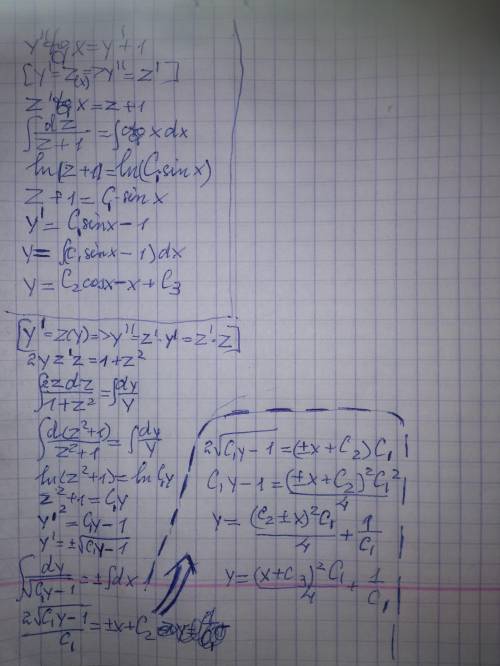 y'' tg x = y' + 1
[y' = z(x) => y'' = z']
z' tg x = z + 1
∫ dz/(z+1) = ∫ ctg x dx
ln|z+1| = ln(C₁ sin x)
z + 1 = C₁ · sin x
y' = C₁ sin x − 1
y = ∫(C₁ sin x − 1) dx
y = C₂ cos x − x + C₃
[y' = z(y) => y'' = z' · y' = z' · z]
2y z' z = 1 + z²
∫ 2z dz/(1+z²) = ∫ dy/y
∫ d(z²+1)/(z²+1) = ∫ dy/y
ln(z²+1) = ln C₁y
z² + 1 = C₁y
y'² = C₁y − 1
y' = ±√(C₁y − 1)
∫ dy/√(C₁y − 1) = ± ∫ dx
2√(C₁y − 1)/C₁ = ±x + C₂
2√(C₁y − 1) = (±x + C₂) C₁
C₁y − 1 = (±x + C₂)² C₁²/4
y = (C₂ ± x)² C₁/4 + 1/C₁
y = (x + C₃)² C₁/4 + 1/C₁